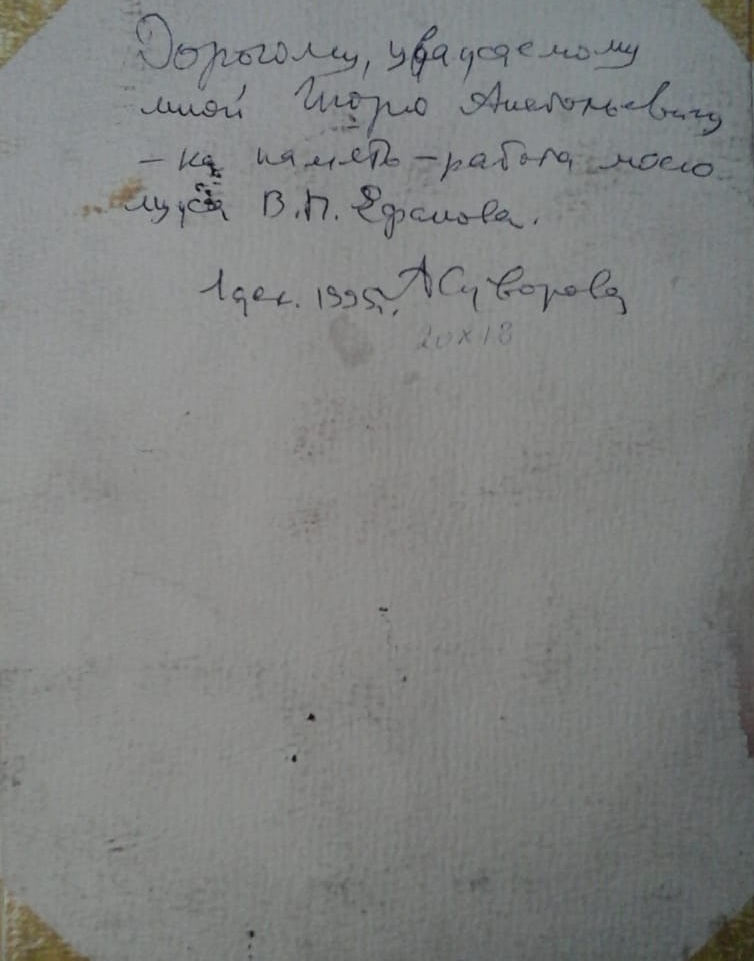 Дорогому, уважаемому
мной Анатольевичу
– на память – работа моего
мужа В.П. Ефанова.
1 дек. 1995г. АСуворова
20×18